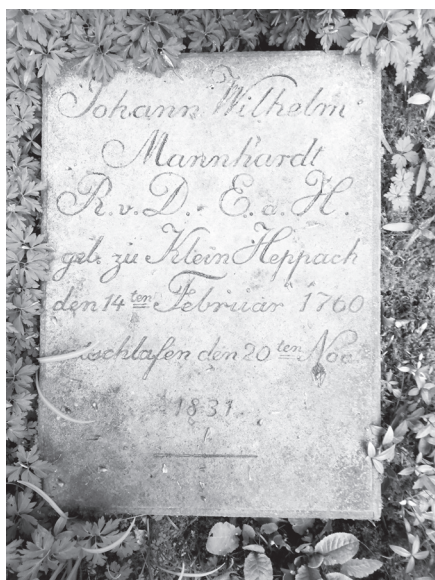 Johann Wilhelm
Mannhardt
R. v. D. - E. a. H.
geb. zu Klein Heppach
den 14ten Februar 1760
schlafen den 20ten Nov
1831